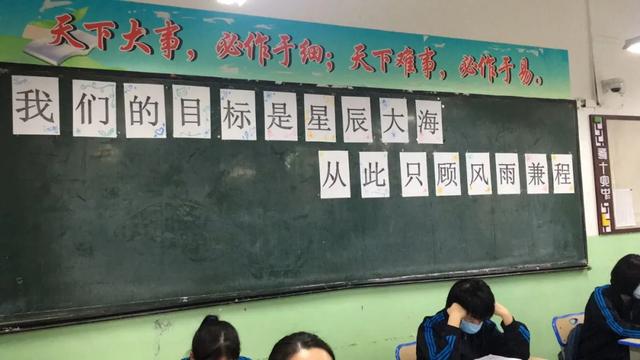 天下大事，必作于细；天下难事，必作于易。
我们的目标是星辰大海
从此只顾风雨兼程